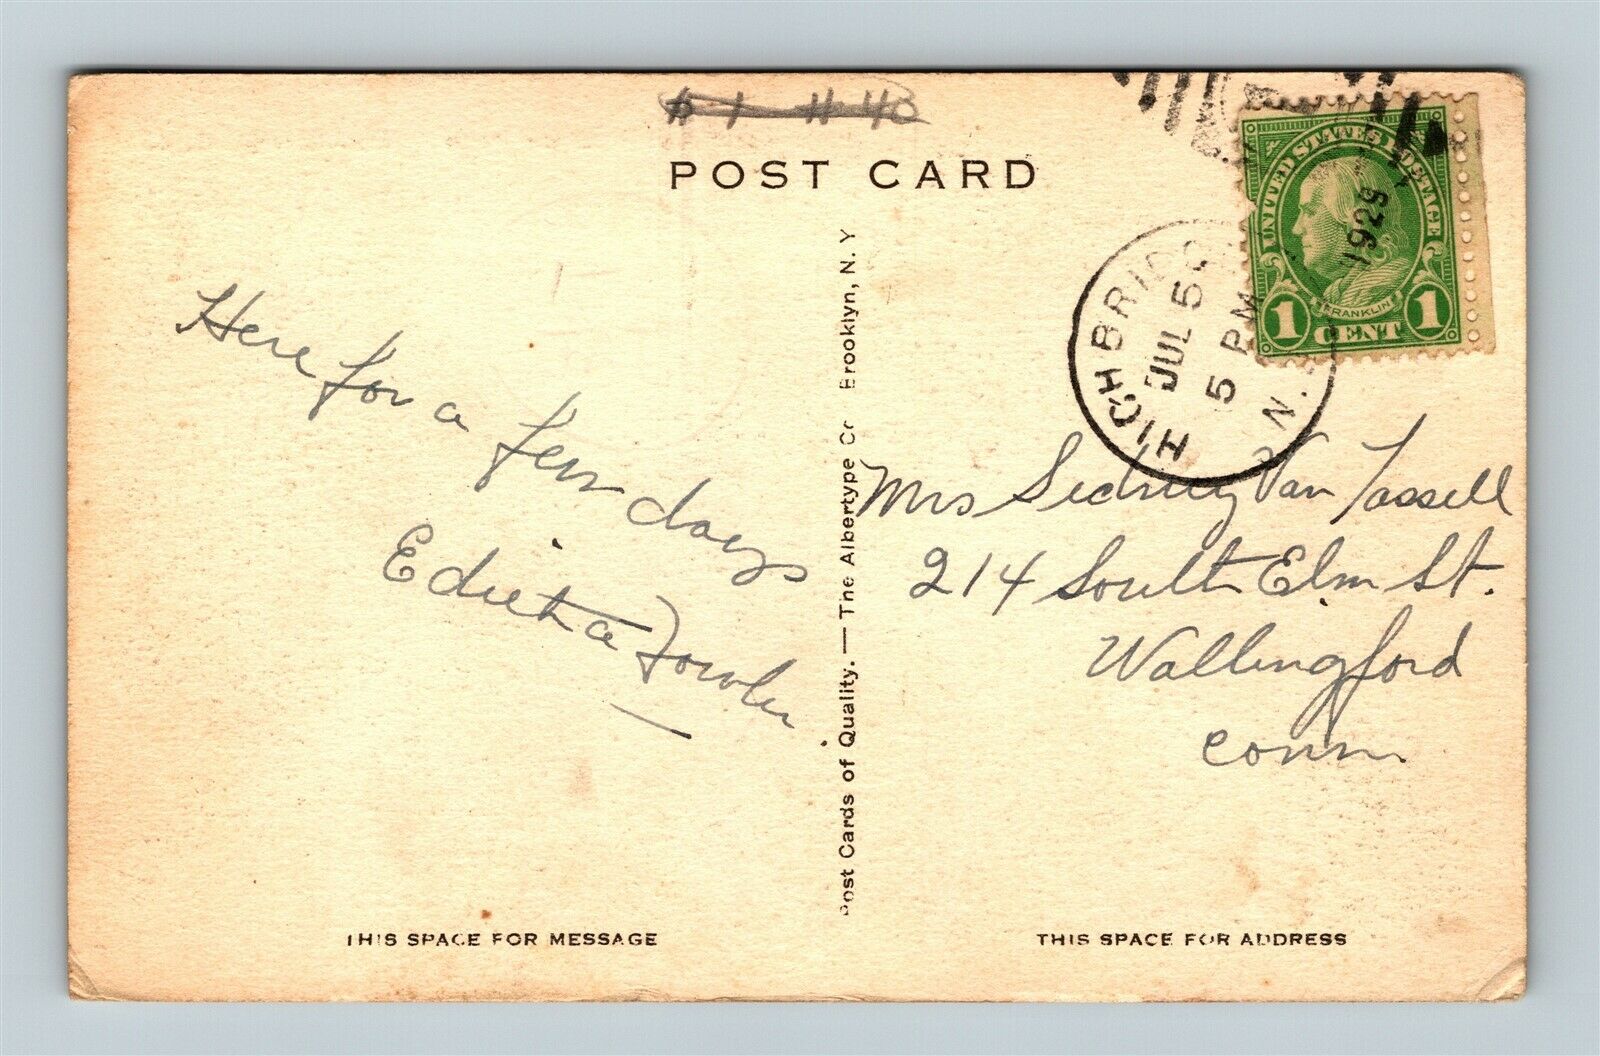 $1 #40
POST CARD
UNITED STATES POSTAGE
FRANKLIN
1 CENT 1
1929
HIGH BRIDGE
JUL 5
5 PM
N.J.
Here for a
few days
Edith a Fowler
Mrs Sidney Van Tassell
214 South Elm St.
Wallingford
Conn.
Post Cards of Quality. — The Albertype Co Brooklyn, N. Y
THIS SPACE FOR MESSAGE
THIS SPACE FOR ADDRESS